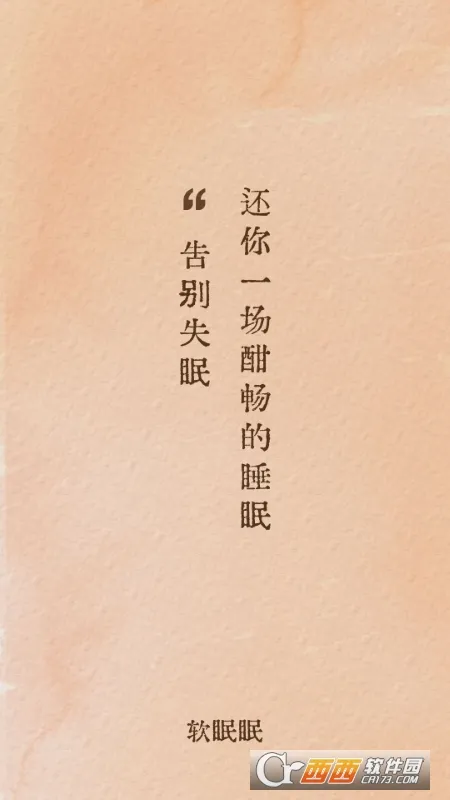 “告别失眠
还你一场酣畅的睡眠
软眠眠
西西软件园
CR173.COM